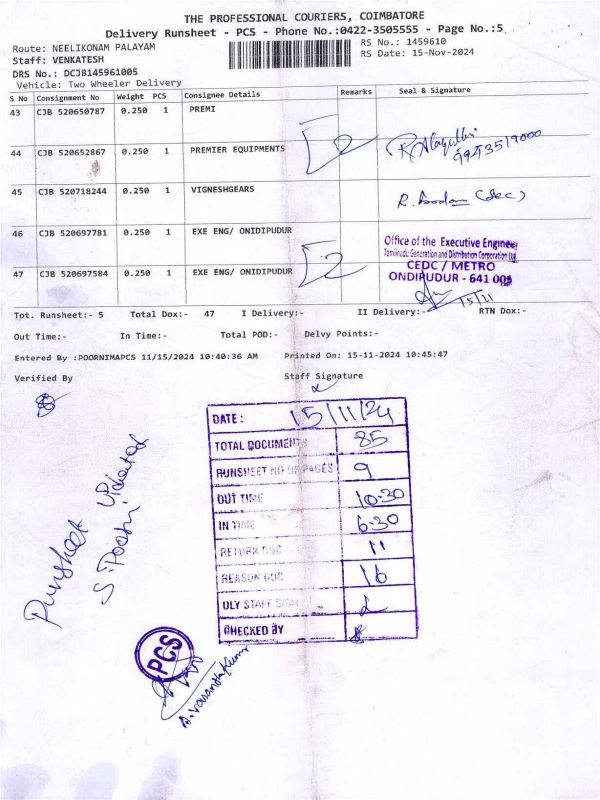 THE PROFESSIONAL COURIERS, COIMBATORE
Delivery Runsheet - PCS - Phone No.:0422-3505555 - Page No.:5
Route: NEELIKONAM PALAYAM RS No.: 1459610
Staff: VENKATESH RS Date: 15-Nov-2024
DRS No.: DCJB145961005
Vehicle: Two Wheeler Delivery
S No Consignment No Weight PCS Consignee Details Remarks Seal & Signature
43 CJB 520650787 0.250 1 PREMI
44 CJB 520652867 0.250 1 PREMIER EQUIPMENTS
45 CJB 520718244 0.250 1 VIGNESHGEARS
46 CJB 520697781 0.250 1 EXE ENG/ ONIDIPUDUR
Office of the Executive Engineer
Tamilnadu Generation and Distribution Corporation Ltd
CEDC / METRO
47 CJB 520697584 0.250 1 EXE ENG/ ONIDIPUDUR ONDIPUDUR - 641 005
15/11
Tot. Runsheet:- 5 Total Dox:- 47 I Delivery:- II Delivery:- RTN Dox:-
Out Time:- In Time:- Total POD:- Delvy Points:-
Entered By :POORNIMAPCS 11/15/2024 10:40:36 AM Printed On: 15-11-2024 10:45:47
Verified By Staff Signature
DATE : 15/11/24
TOTAL DOCUMENTS 85
RUNSHEET NO OF PAGES 9
OUT TIME 10:30
IN TIME 6:30
RETURN DOC 11
REASON DOC 16
DLY STAFF SIGN
CHECKED BY
PCS